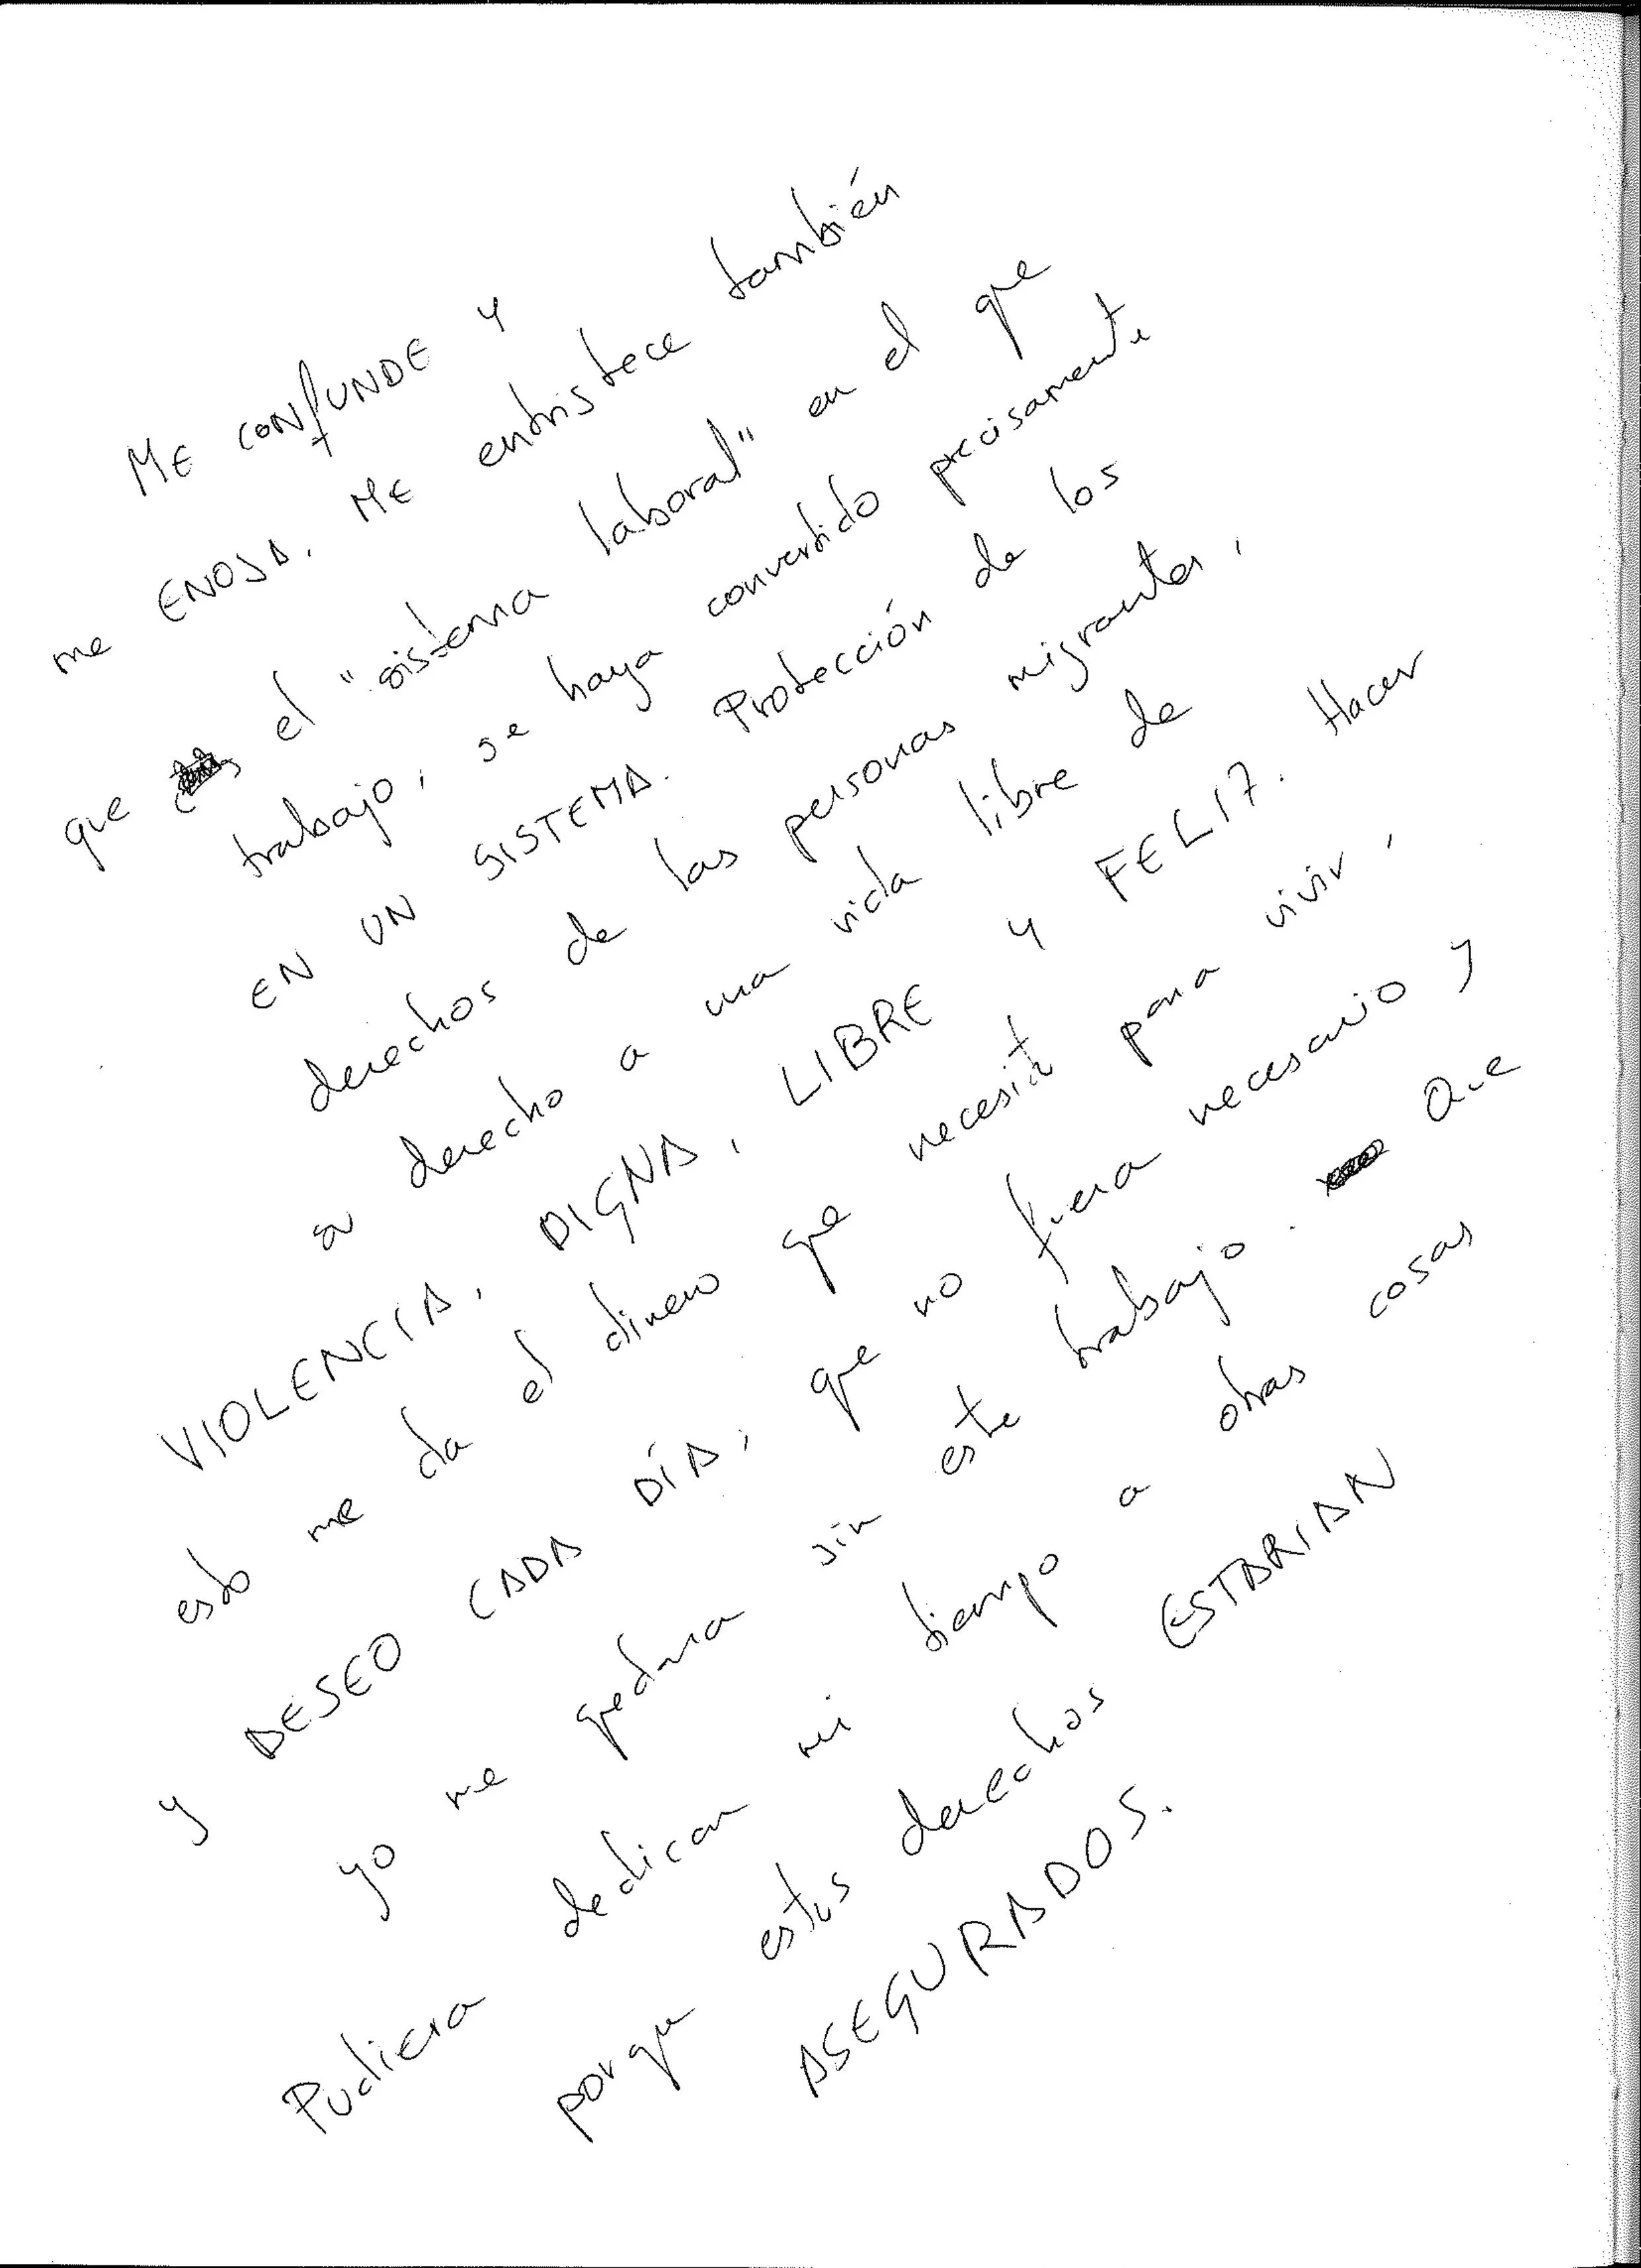 ME CONfUNDE Y
me ENOJA. ME entristece también
que el "sistema laboral" en el que
trabajo, se haya convertido precisamente
EN UN SISTEMA. Protección de los
derechos de las personas migrantes,
su derecho a una vida libre de
VIOLENCIA, DIGNA, LIBRE Y FELIZ. Hacer
esto me da el dinero que necesito para vivir,
y DESEO CADA DÍA, que no fuera necesario y
yo me quedara sin este trabajo. Que
Pudiera dedicar mi tiempo a otras cosas
porque estos derechos ESTARIAN
ASEGURADOS.